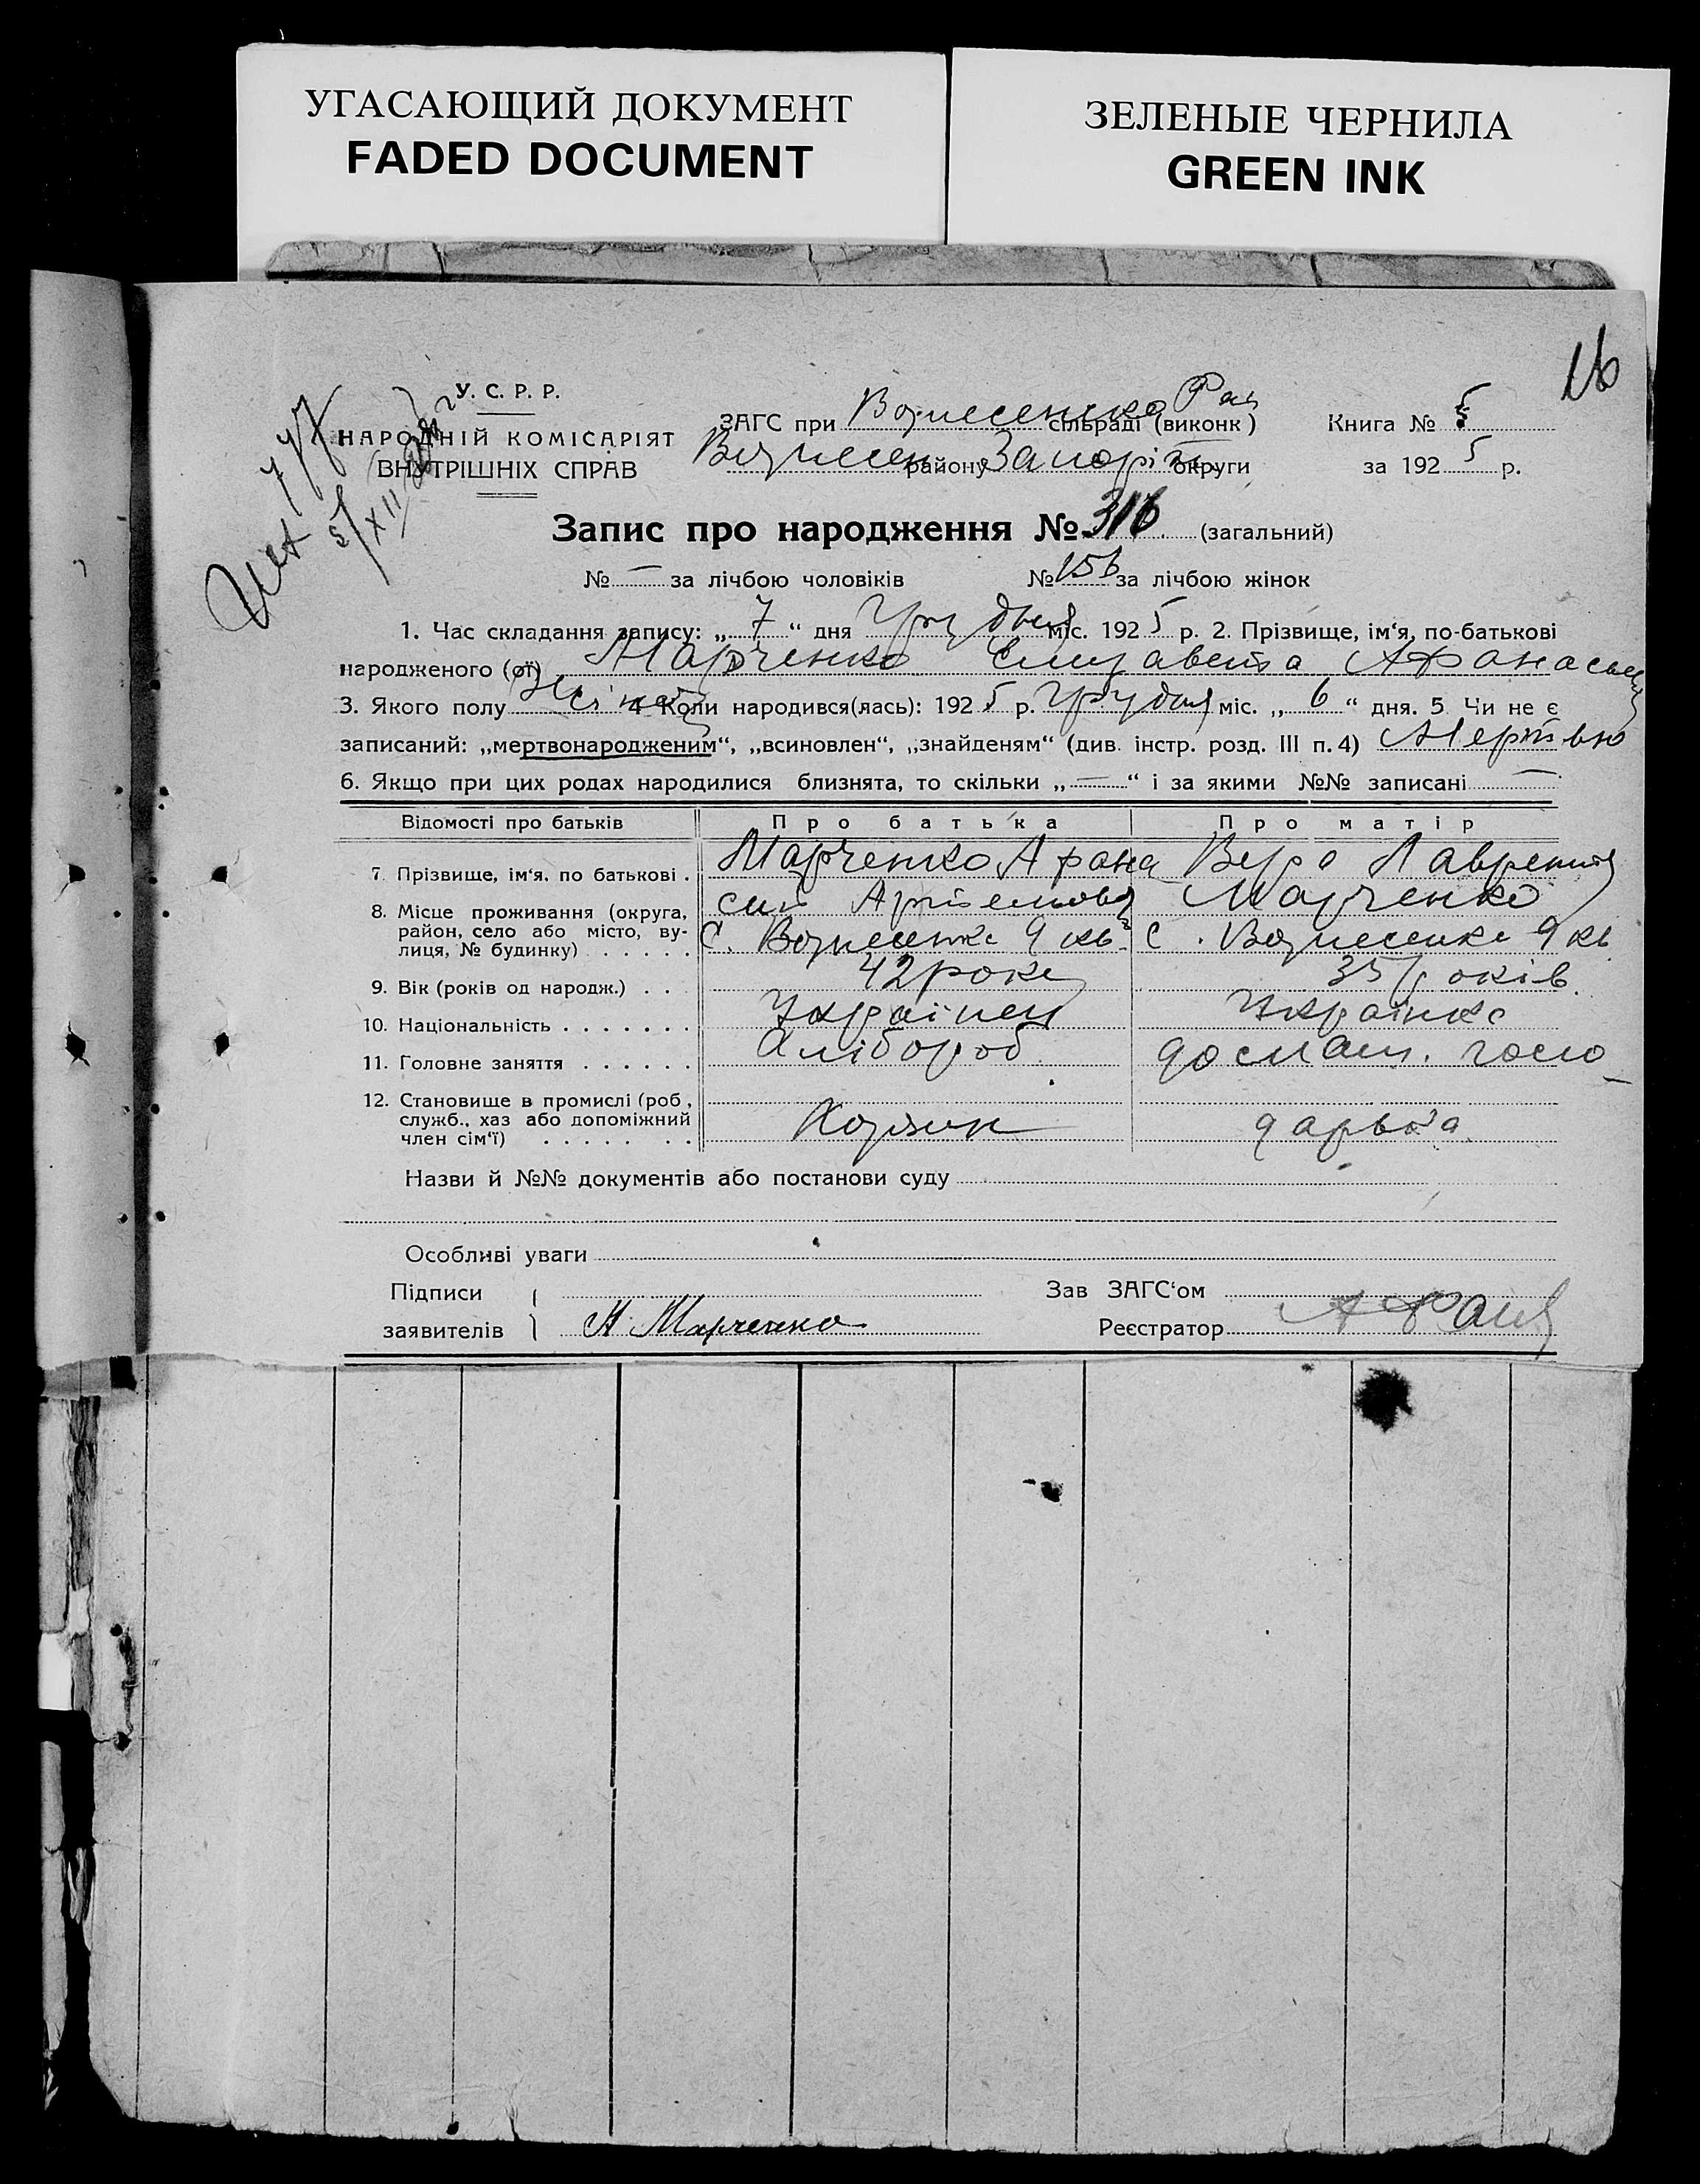 УГАСАЮЩИЙ ДОКУМЕНТ
FADED DOCUMENT
ЗЕЛЕНЫЕ ЧЕРНИЛА
GREEN INK
16
У. С. Р. Р.
НАРОДНІЙ КОМІСАРІЯТ
ВНУТРІШНІХ СПРАВ
ЗАГС при Вознесенско Рай сільраді (виконк)
Вознесен району Запоріж округи
Книга № 5
за 1925 р.
Запис про народження № 316 (загальний)
№ — за лічбою чоловіків № 156 за лічбою жінок
1. Час складання запису: „7“ дня Грудня міс. 1925 р. 2. Прізвище, ім‘я, по-батькові
народженого (ої) Марченко Елизавета Афанасьев
3. Якого полу Жіноч 4 Коли народився(лась): 1925 р. Грудня міс. „6“ дня. 5 Чи не є
записаний: „мертвонародженим“, „всиновлен“, „знайденям“ (див. інстр. розд. III п. 4) Мертвою
6. Якщо при цих родах народилися близнята, то скільки „—“ і за якими №№ записані —
Відомості про батьків Про батька Про матір
7 Прізвище, ім‘я, по батькові . Марченко Афана Вера Лаврентьев
8. Місце проживання (округа, район, село або місто, вулиця, № будинку) сий Артемович Марченко
С. Вознесенка 9 кв. С. Вознесенка 9 кв
9. Вік (років од народж.) . . 42 роки 35 років
10. Національність . . . . . . . Українец Українка
11. Головне заняття . . . . . . Хлібороб домаш. госпо
12. Становище в промислі (роб, служб., хаз або допоміжний член сім‘ї) . . . . . . . Хозяин дарька
Назви й №№ документів або постанови суду
Особливі уваги
Підписи
заявителів А Марченко
Зав ЗАГС‘ом
Реєстратор